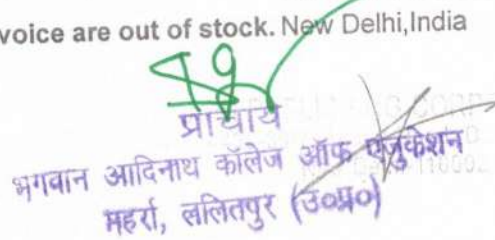 voice are out of stock. New Delhi,India
प्राचार्य
भगवान आदिनाथ कॉलेज ऑफ एजुकेशन
महर्रा, ललितपुर (उ०प्र०)